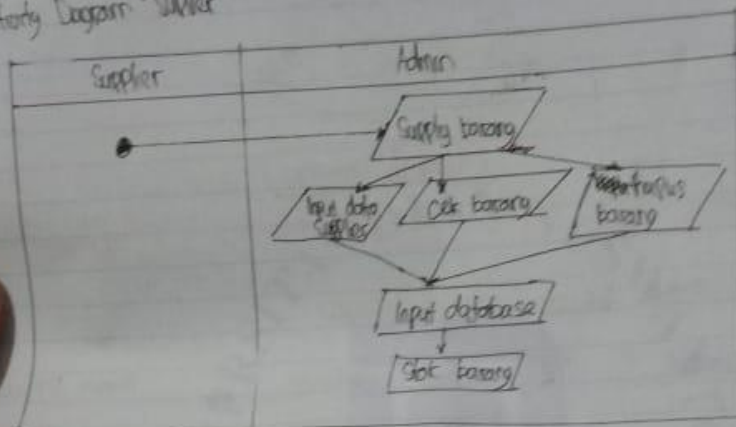 Diagram Supplier
Supplier
Admin
Supply barang
Input data
Cek barang
barang
Input database
Stok barang